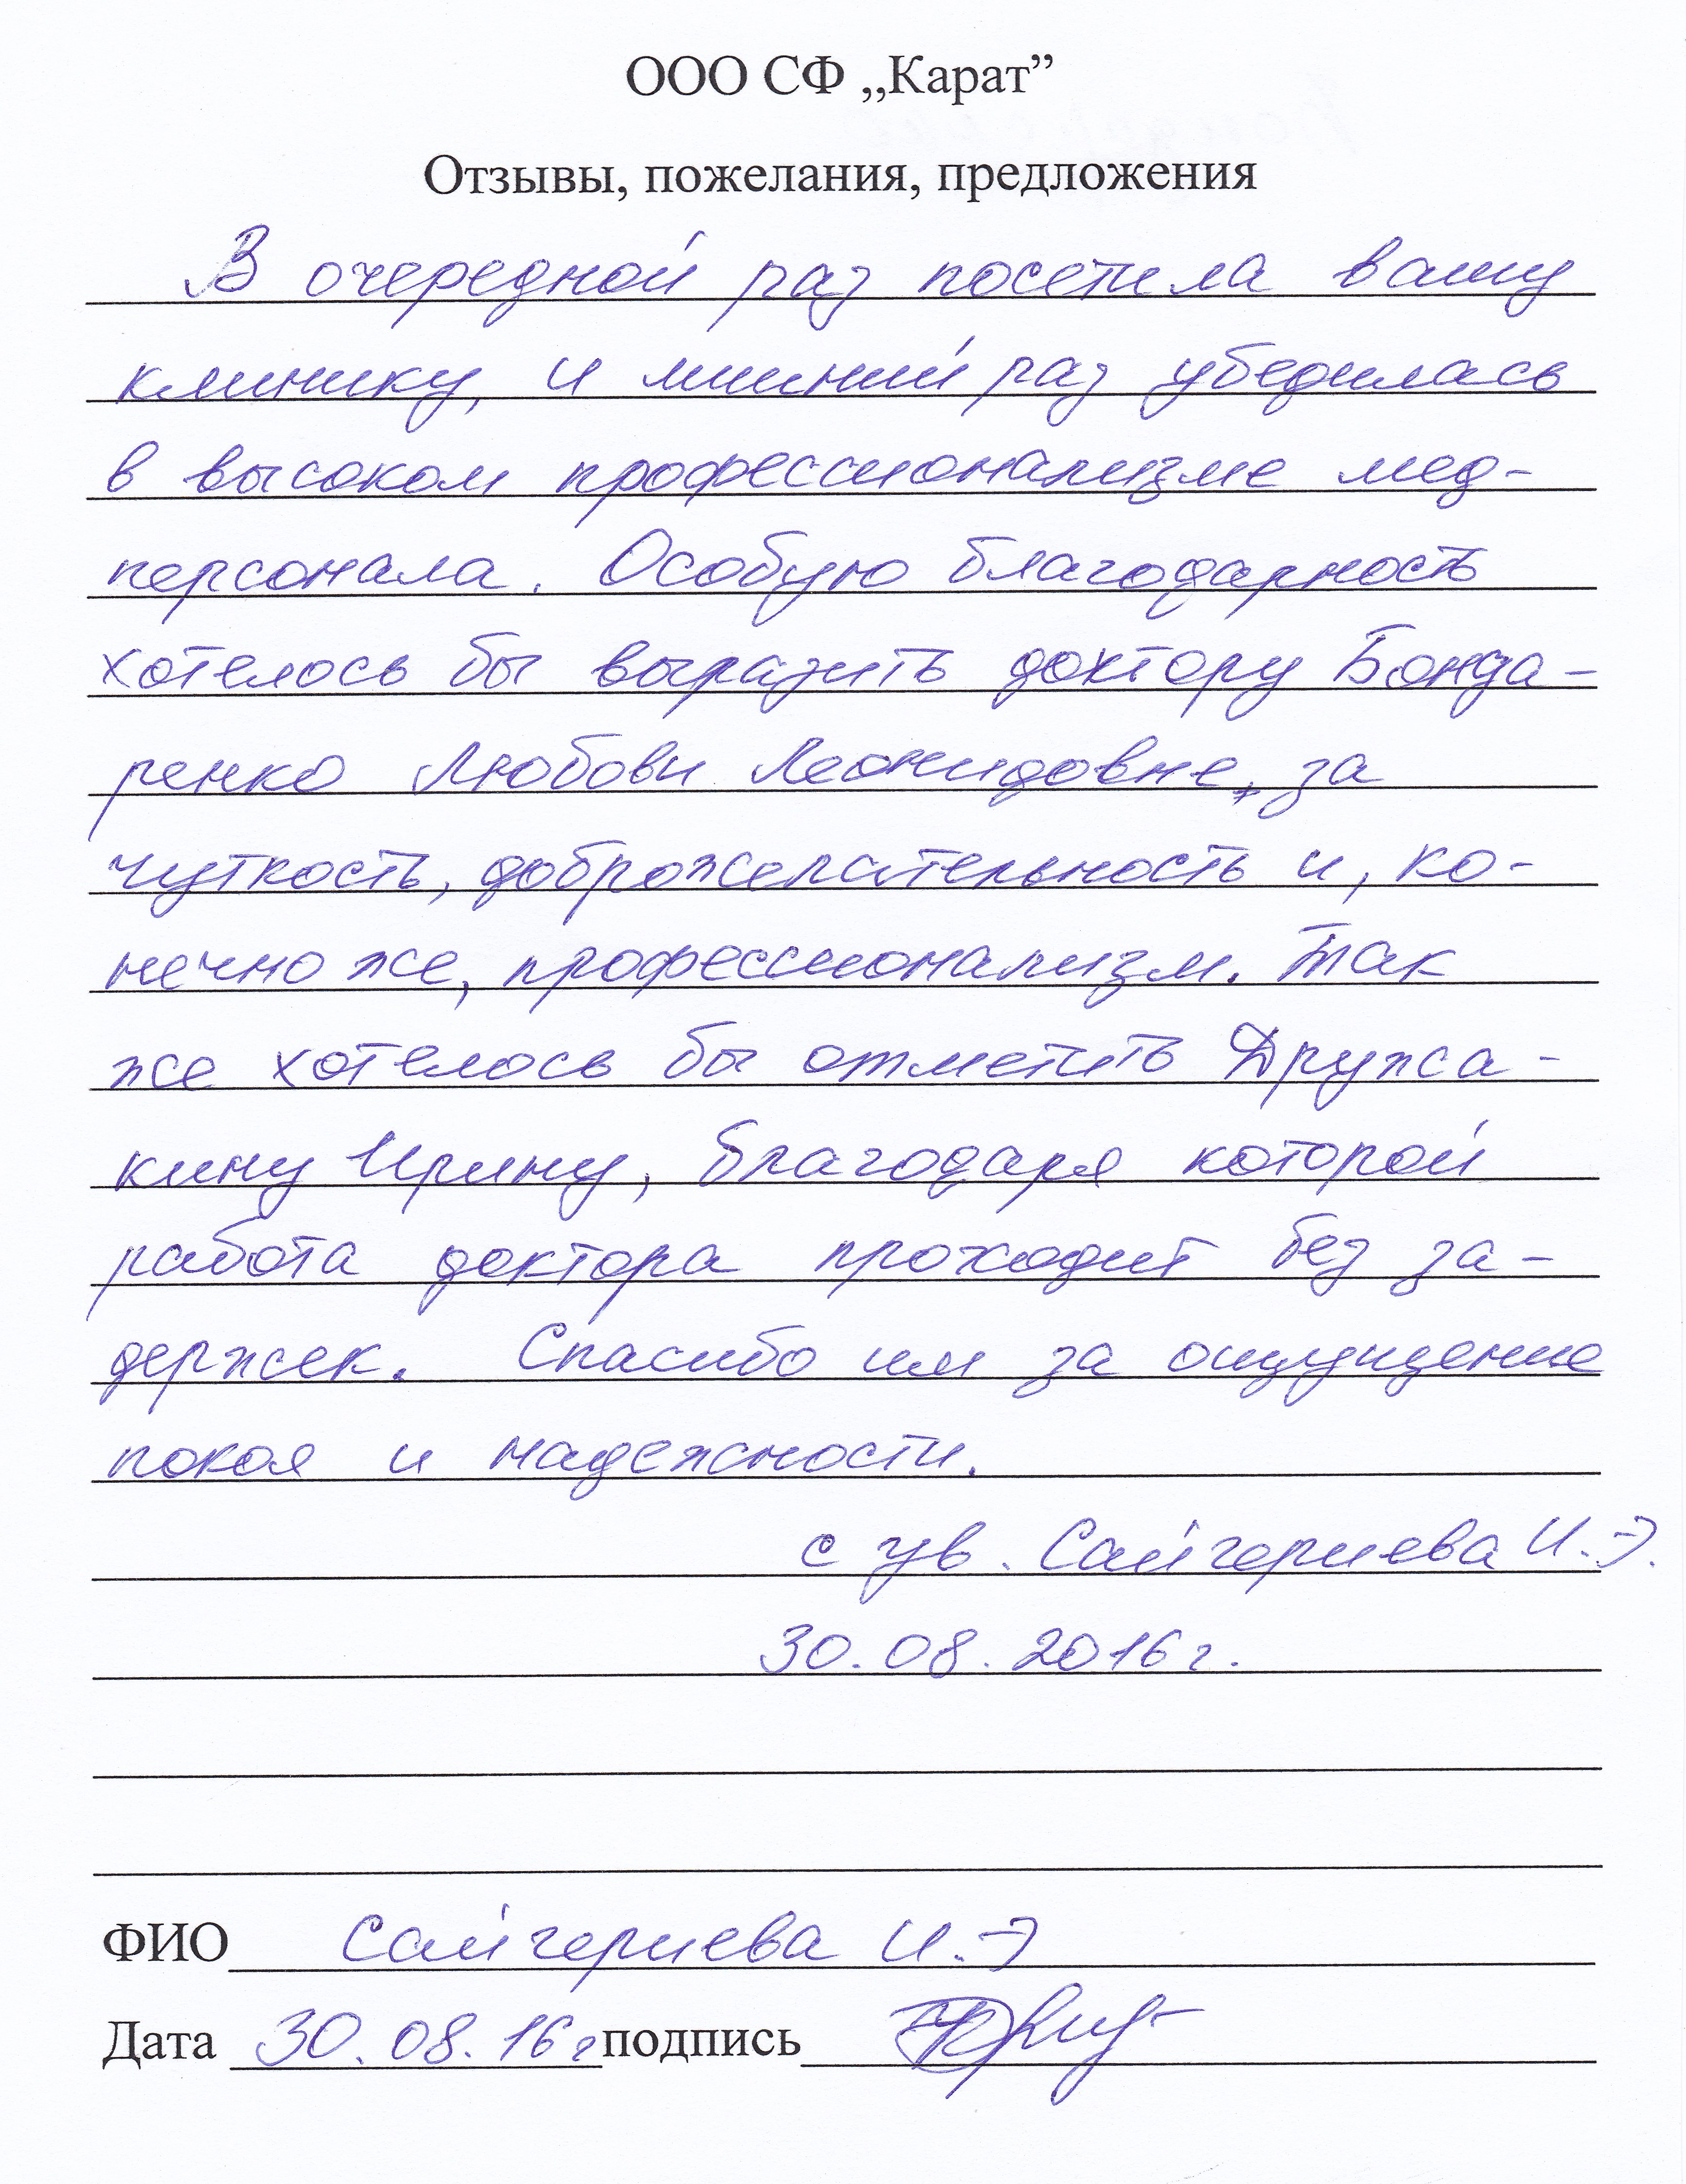 ООО СФ ,,Карат”
Отзывы, пожелания, предложения
В очередной раз посетила вашу
клинику, и лишний раз убедилась
в высоком профессионализме мед-
персонала. Особую благодарность
хотелось бы выразить доктору Бонда-
ренко Любови Леонидовне, за
чуткость, доброжелательность и, ко-
нечно же, профессионализм. Так
же хотелось бы отметить Дружа-
кину Ирину, благодаря которой
работа доктора проходит без за-
держек. Спасибо им за ощущение
покоя и надежности.
с ув. Сайгериева И.Э.
30.08.2016г.
ФИО Сайгериева И.Э
Дата 30.08.16г подпись